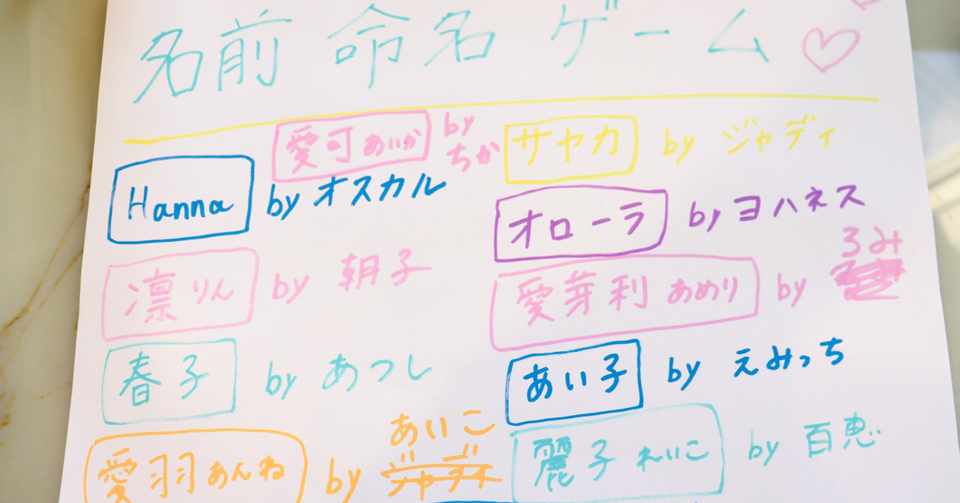 名前 命名 ゲーム
愛可 あいか by ちか
サヤカ by ジャディ
Hanna by オスカル
オローラ by ヨハネス
凛 りん by 朝子
愛芽利 あめり by るみ
春子 by あつし
あい子 by えみっち
愛羽 あんね by あいこ
麗子 れいこ by 百恵